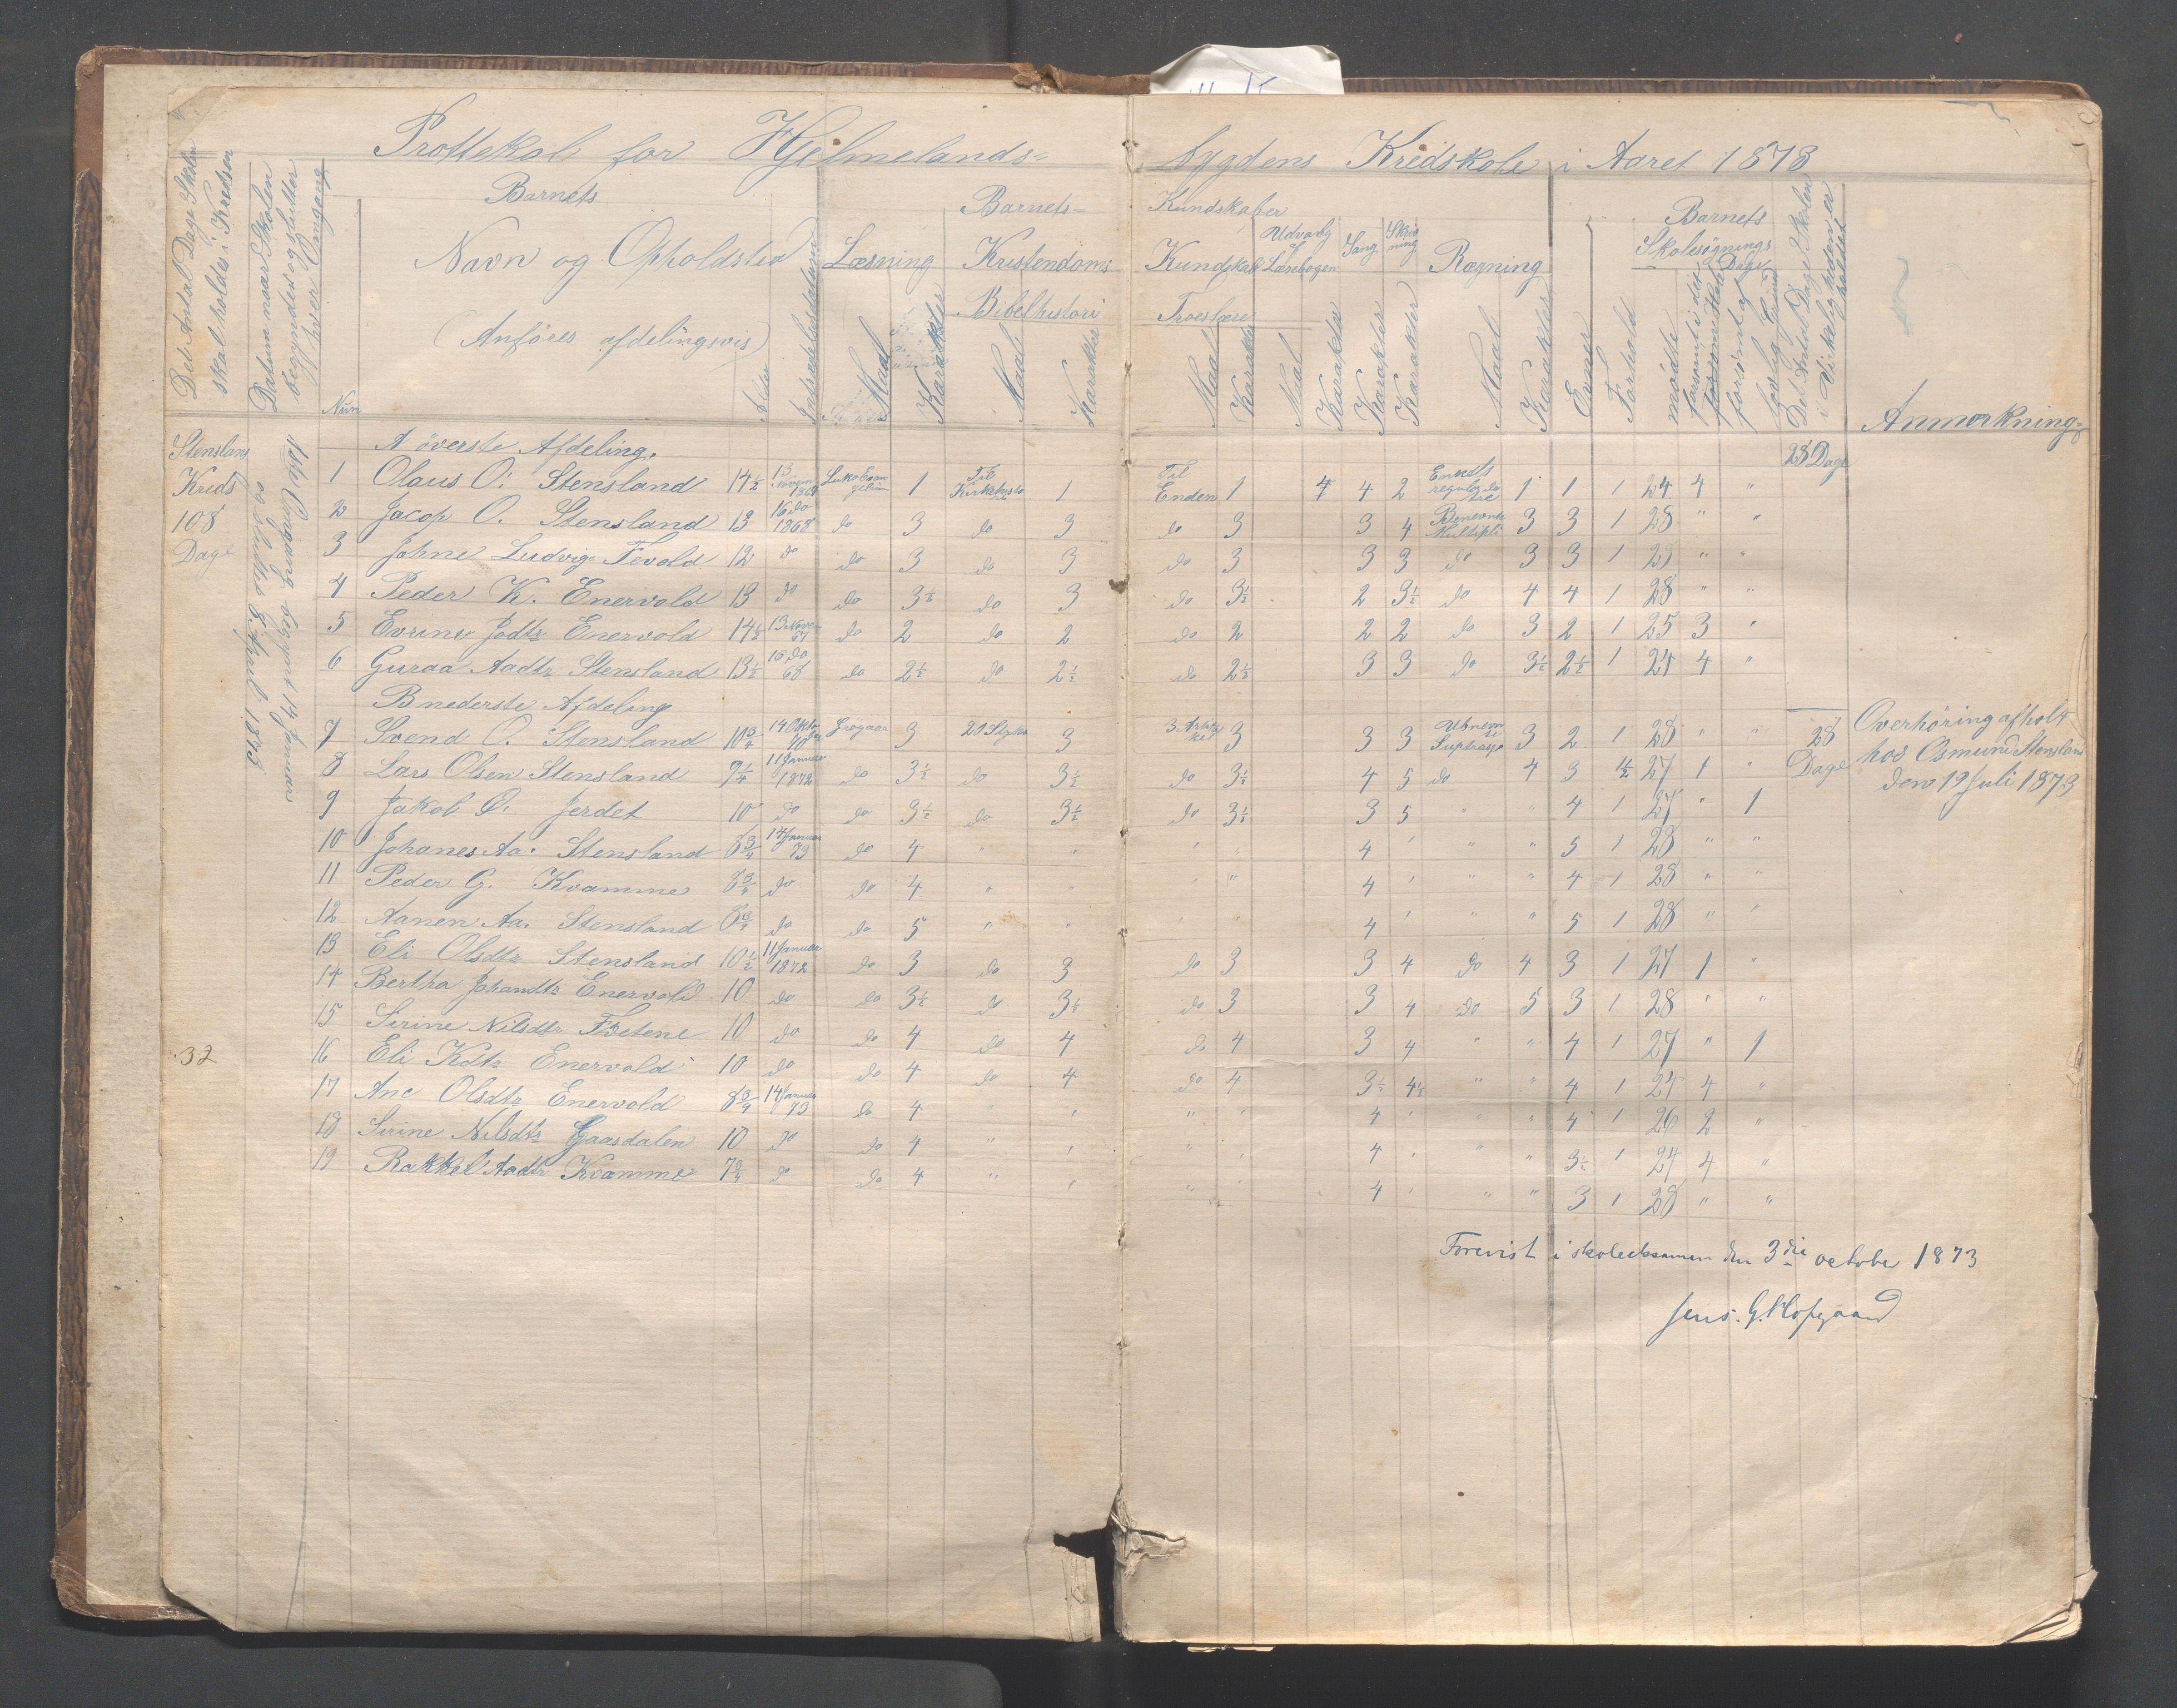 Prottekol for Hjelmelands-bygdens Kredskole i Aaret 1873
Det Antal Dage Skolen skal holdes i Kredsen
Datum naar Skolen begyndes og slutter hver Omgang
Num
Barnets
Navn og Opholdsted
(Anföres afdelingsvis)
Alder
Læsning
Maal
Karakter
Barnets-
Kristendoms
Bibelhistori
Maal
Karakter
Kundskaber
Kundskab
Troeslære
Maal
Karakter
Udvalg
Læsebogen
Maal
Karakter
Sang
Karakter
Skriv
ning
Karakter
Regning
Maal
Karakter
Evner
Forhold
Barnets
Skolesøgnings
Dage
mödte
forsömt af
lovlig Grund
Det Antal Dage Skolen i Virkeligheden er holdet
Anmærkning
Stenslans
Kreds
108
Dage
1ste Omgang begynt 14 Januar
og sluttes 8 April 1873
A överste Afdeling.
28 Dage
1 Olaus O. Stensland 14½ 13 Novem 1869 1 Til Kirkehisto 1 Til Enden 1 4 4 2 1 1 1 24 4 "
2 Jacop O. Stensland 13 16 do 1868 do 3 do 3 do 3 3 4 3 3 1 28 " "
3 Johne Ludvig Fevold 12 do do 3 do 3 do 3 3 3 do 3 3 1 29 " "
4 Peder K. Enervold 13 do do 3½ do 3 do 3½ 2 3½ do 4 4 1 28 " "
5 Evrine Jodtr Enervold 14½ 13 Novem 67 do 2 do 2 do 2 2 2 do 3 2 1 25 3 "
6 Guraa Aadtr Stensland 13½ 15 do 68 do 2½ do 2½ do 2½ 3 3 do 3½ 2½ 1 24 4 "
B nederste Afdeling
7 Svend O. Stensland 10¾ 14 Oktober 70 Grøgaar 3 20 Stykke 3 3 Artikkel 3 3 3 3 2 1 28 " " 28
8 Lars Olsen Stensland 9¼ 11 Januar 1872 do 3½ do 3½ do 3½ 4 5 do 4 3 1½ 27 1 " Dage
9 Jakob O. Jerdet 10 do do 3½ do 3½ do 3½ 3 5 " " 4 1 27 " 1
10 Johanes Aa. Stensland 8¾ 14 Januar 73 do 4 " " " " 4 " " " 5 1 28 " "
11 Peder G. Kvamme 8¾ do do 4 " " " " 4 " " " 4 1 28 " "
12 Aanen Aa. Stensland 8¾ do do 5 " " " " 4 " " " 5 1 28 " "
13 Eli Olsdtr Stensland 10½ 11 Januar 1872 do 3 do 3 do 3 3 4 do 4 3 1 27 1 "
14 Bertha Johandtr Enervold 10 do do 3½ do 3½ do 3 3 4 do 5 3 1 28 " "
15 Sirine Nilsdtr Fietene 10 do do 4 do 4 do 4 3 4 " " 4 1 27 " 1
16 Eli Kdtr Enervold 10 do do 4 do 4 do 4 3½ 4½ " " 4 1 24 4 "
17 Ane Olsdtr Enervold 8¾ 14 Januar 73 do 4 " " " " 4 " " " 4 1 26 2 "
18 Sirine Nilsdtr Gaasdalen 10 do do 4 " " " " 4 " " " 3½ 1 24 4 "
19 Rakkel Aadtr Kvamme 7¾ do do 4 " " " " 4 " " " 3 1 28 " "
Overhöring afholt
hos Osmund Stensland
den 19 Juli 1873
32
Forevist i skoleeksamen den 3die october 1873
Jens. G. Hofgaard